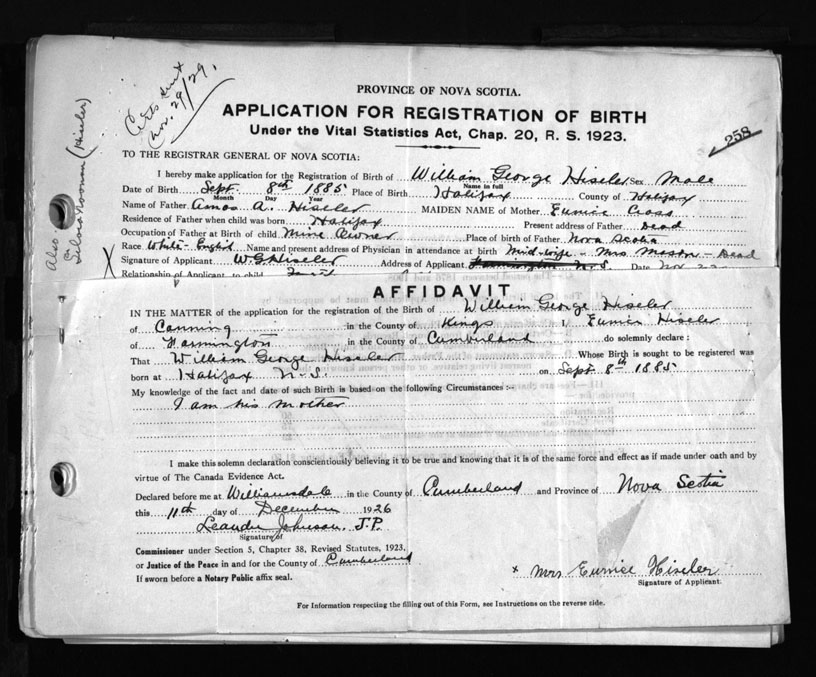 PROVINCE OF NOVA SCOTIA.
APPLICATION FOR REGISTRATION OF BIRTH
Under the Vital Statistics Act, Chap. 20, R. S. 1923.
258
Certs sent
Nov. 29/29.
Also
(Hiseler)
TO THE REGISTRAR GENERAL OF NOVA SCOTIA:
I hereby make application for the Registration of Birth of William George Hiseler Sex Male
Name in full
Date of Birth Sept. 8th 1885 Place of Birth Halifax County of Halifax
Month Day Year
Name of Father Amos A. Hiseler MAIDEN NAME of Mother Eunice Cross
Residence of Father when child was born Halifax Present address of Father Dead
Occupation of Father at Birth of child Mine Owner Place of birth of Father Nova Scotia
Race White - English Name and present address of Physician in attendance at birth Mid-wife - Mrs Mason - Dead
X Signature of Applicant W G Hiseler Address of Applicant N.S. Date Nov 22
Relationship of Applicant to child
AFFIDAVIT
IN THE MATTER of the application for the registration of the Birth of William George Hiseler
of Canning in the County of Kings I, Eunice Hiseler
of Farmington in the County of Cumberland do solemnly declare:
That William George Hiseler Whose Birth is sought to be registered was
born at Halifax N.S. on Sept 8th 1885
My knowledge of the fact and date of such Birth is based on the following Circumstances:-
I am his mother
I make this solemn declaration conscientiously believing it to be true and knowing that it is of the same force and effect as if made under oath and by
virtue of The Canada Evidence Act.
Declared before me at Williamsdale in the County of Cumberland and Province of Nova Scotia
this 11th day of December 1926
Leander Johnson, J.P.
Signature of
Commissioner under Section 5, Chapter 38, Revised Statutes, 1923,
or Justice of the Peace in and for the County of Cumberland
If sworn before a Notary Public affix seal.
x Mrs Eunice Hiseler
Signature of Applicant.
For Information respecting the filling out of this Form, see Instructions on the reverse side.